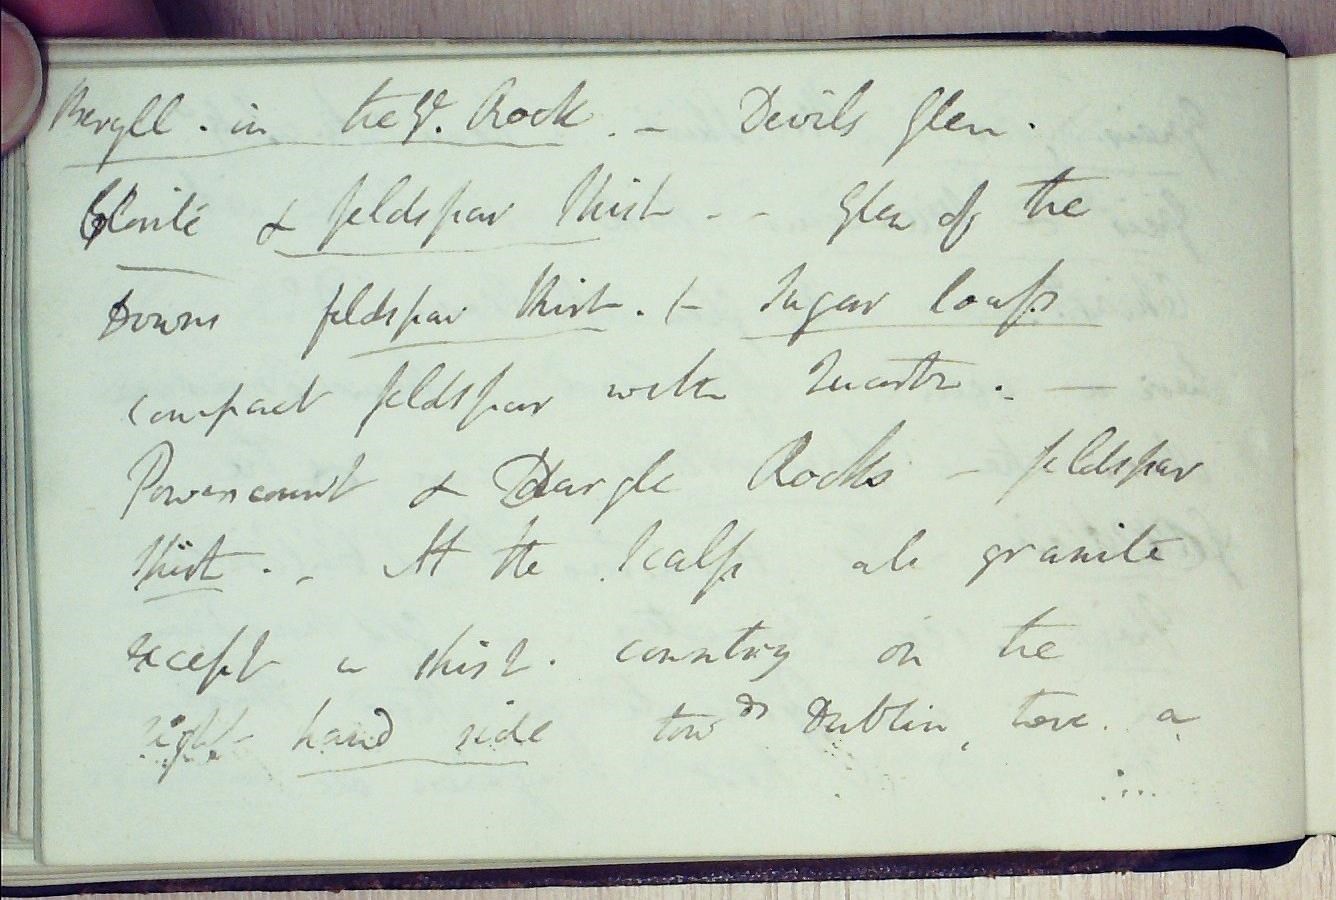 Beryll. in the Gt. Rock. - Devils Glen.
Clorite & feldspar Shist - - Glen of the
Downs feldspar Shist. - Sugar loafs
compact feldspar with Quartz. —
Powerscourt & Dargle Rocks - feldspar
Shist. - At the Scalp all granite
except a shist. country on the
right hand side towds Dublin, a